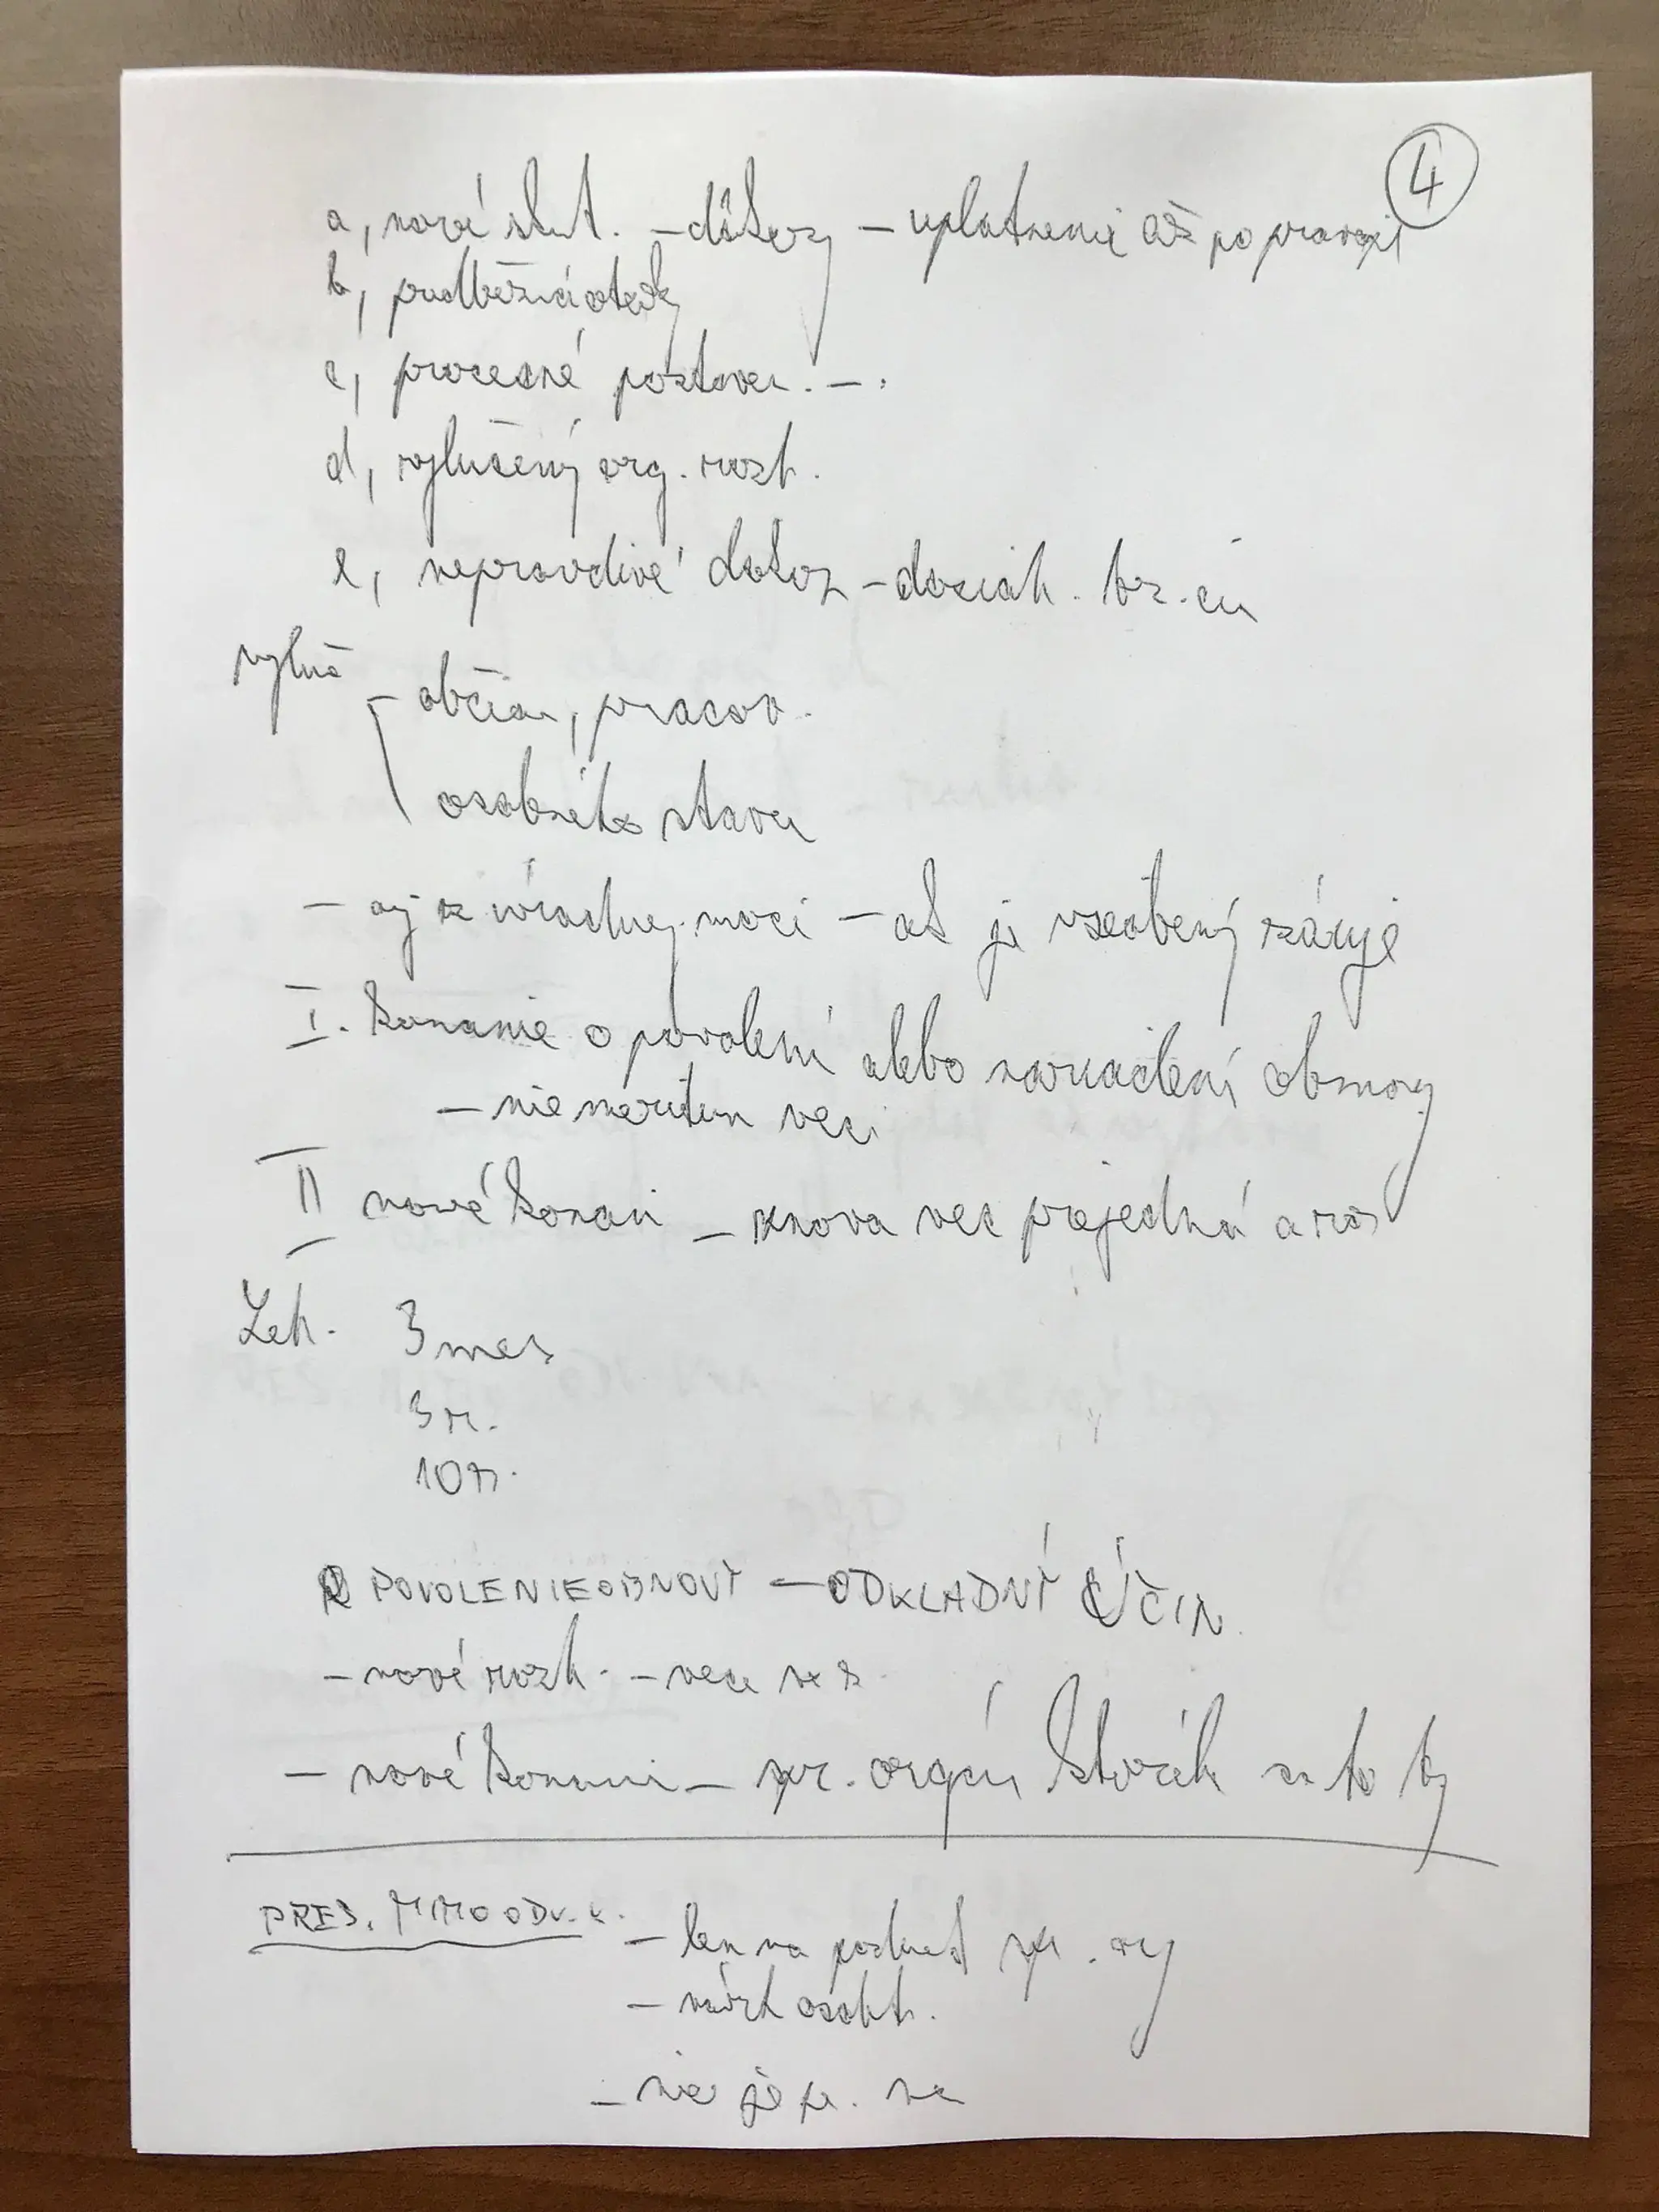 4
a, nové skut. - dôkazy - uplatnenie až po pravopl
b, predbežná otázky
c, procesné postaven. - .
d, vylúčený org. rozh.
e, nepravdivé dôkaz - dosiah. tr. čin
vyluč
- občian, pracov.
osobného stavu
- aj z úradnej moci - ak je všeobecný záuje
I. konanie o povolení alebo nariadení obnovy
- nie meritum veci
II nové konani - znova vec prejedná a roz
Leh. 3 mes
3 r.
10 r.
POVOLENIE OBNOVY - ODKLADNÝ ÚČIN.
- nové rozh. - veci
- nové konani - pr. orgán
PRES. MIMO ODV. K. - len na podnet org
- osobit.
- nie je na